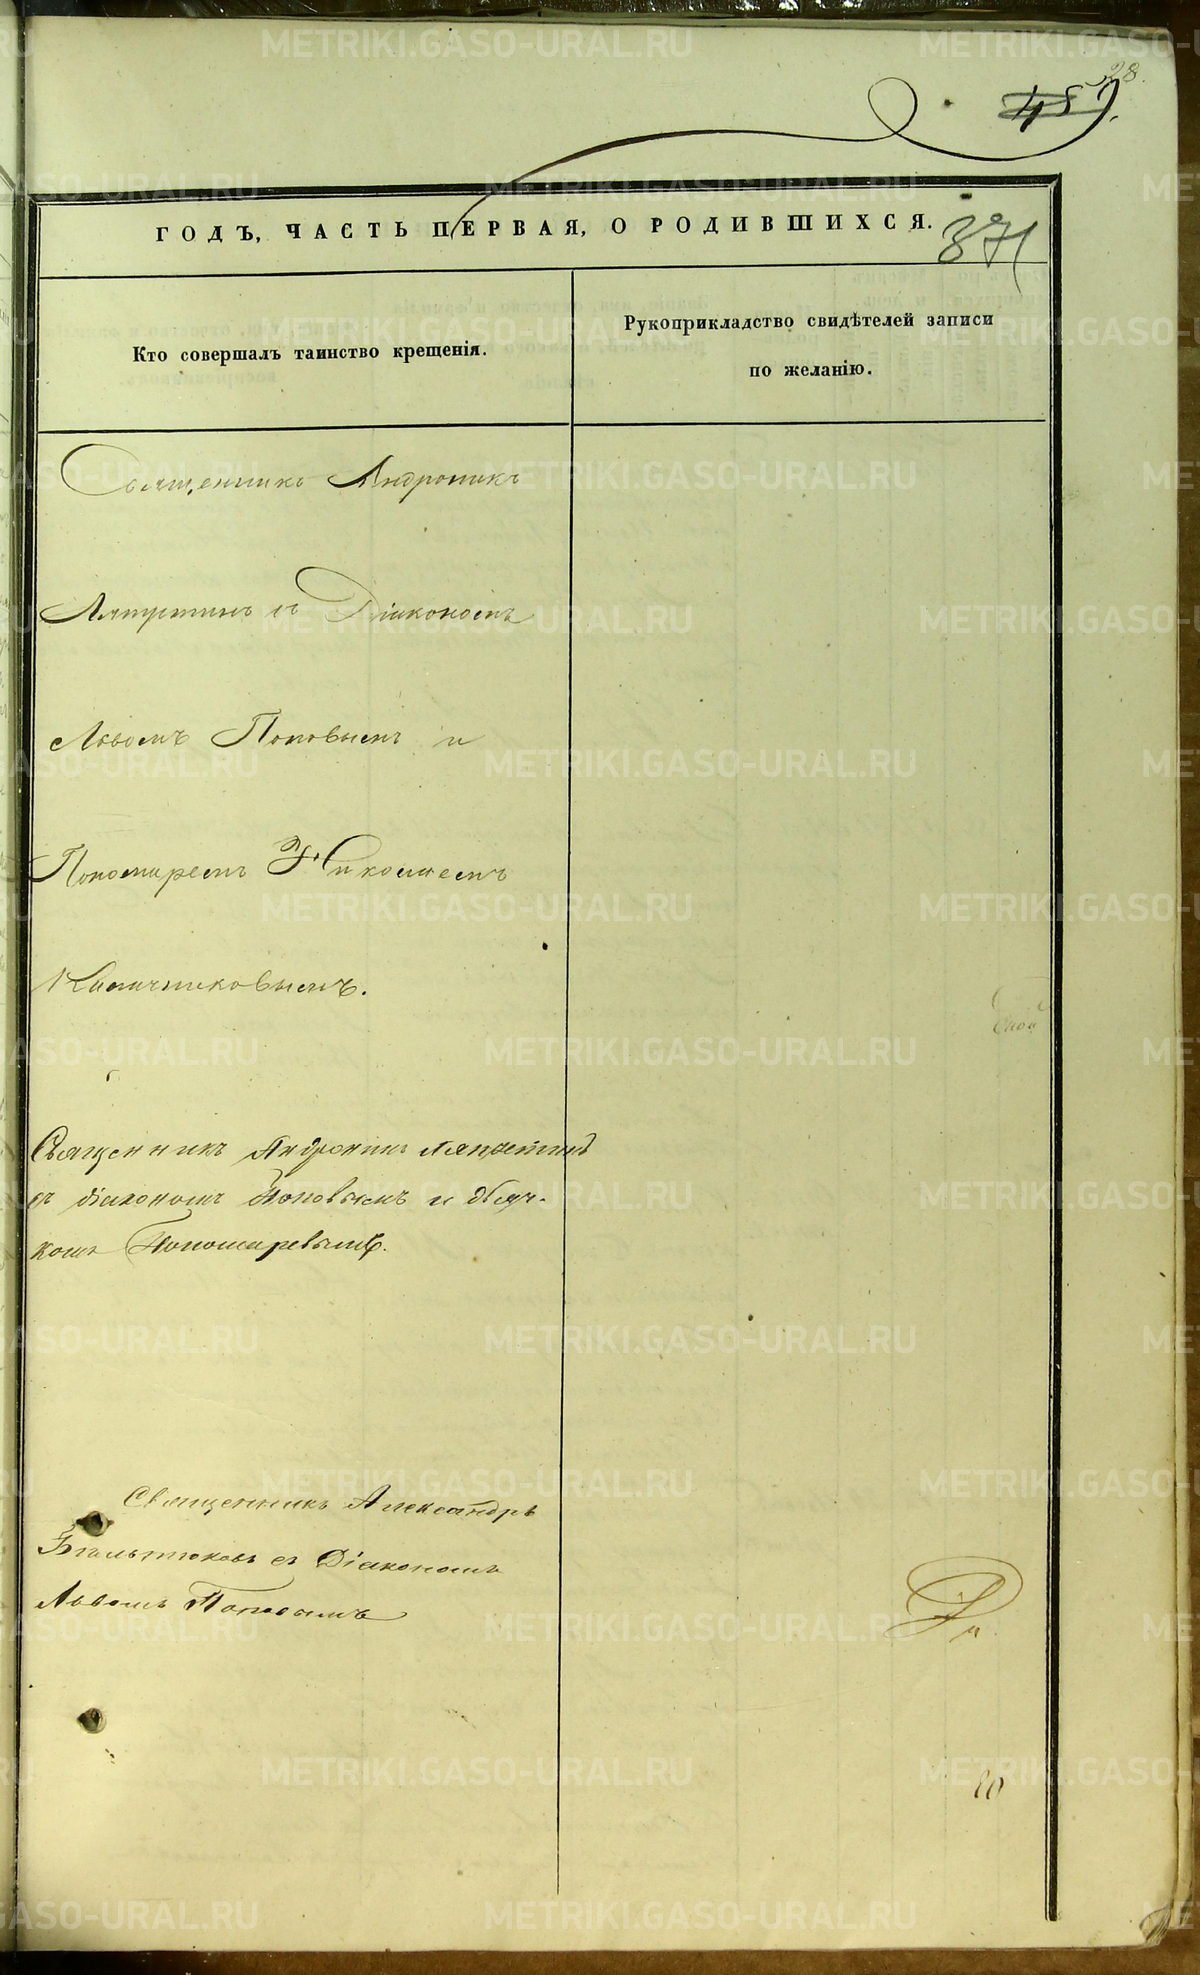 28.
45
ГОДЪ, ЧАСТЬ ПЕРВАЯ, О РОДИВШИХСЯ.
371
Кто совершалъ таинство крещенія.
Рукоприкладство свидѣтелей записи
по желанію.
Священникъ Андроникъ
Ляпустинъ съ Діакономъ
Львомъ Поповымъ и
Пономаремъ
Священникъ Андроникъ Ляпустинъ
съ діакономъ Поповымъ и дьяч-
комъ Пономаревымъ.
Священникъ Александръ
съ Діакономъ
Львомъ Поповымъ
METRIKI.GASO-URAL.RU